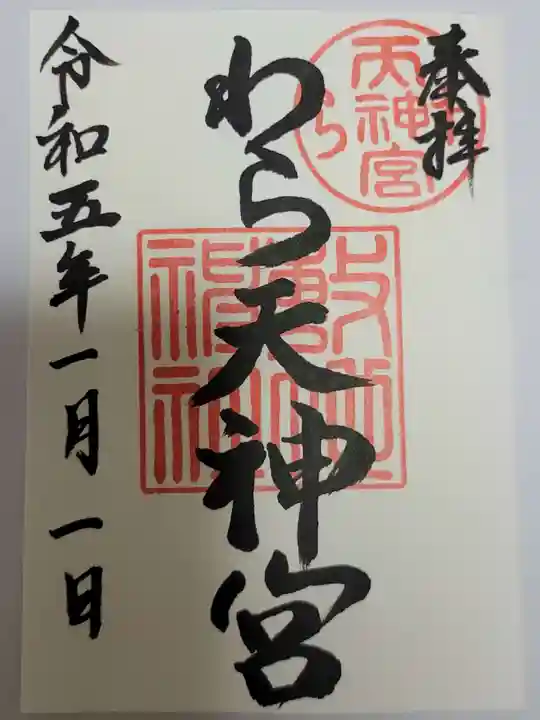 奉拝
わら天神宮
令和五年一月一日
わら天神宮
敷地神社